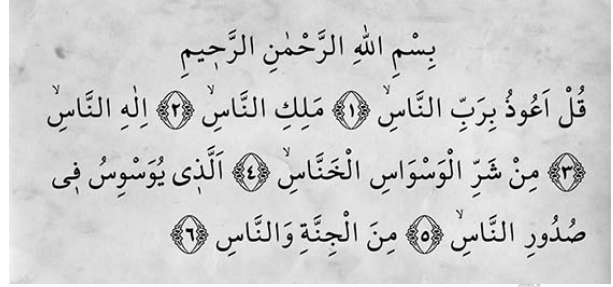 بِسْمِ اللهِ الرَّحْمٰنِ الرَّحٖيمِ
قُلْ اَعُوذُ بِرَبِّ النَّاسِۙ ﴿١﴾ مَلِكِ النَّاسِۙ ﴿٢﴾ اِلٰهِ النَّاسِۙ
﴿٣﴾ مِنْ شَرِّ الْوَسْوَاسِ الْخَنَّاسِۙ ﴿٤﴾ اَلَّذٖى يُوَسْوِسُ فٖى
صُدُورِ النَّاسِۙ ﴿٥﴾ مِنَ الْجِنَّةِ وَالنَّاسِ ﴿٦﴾